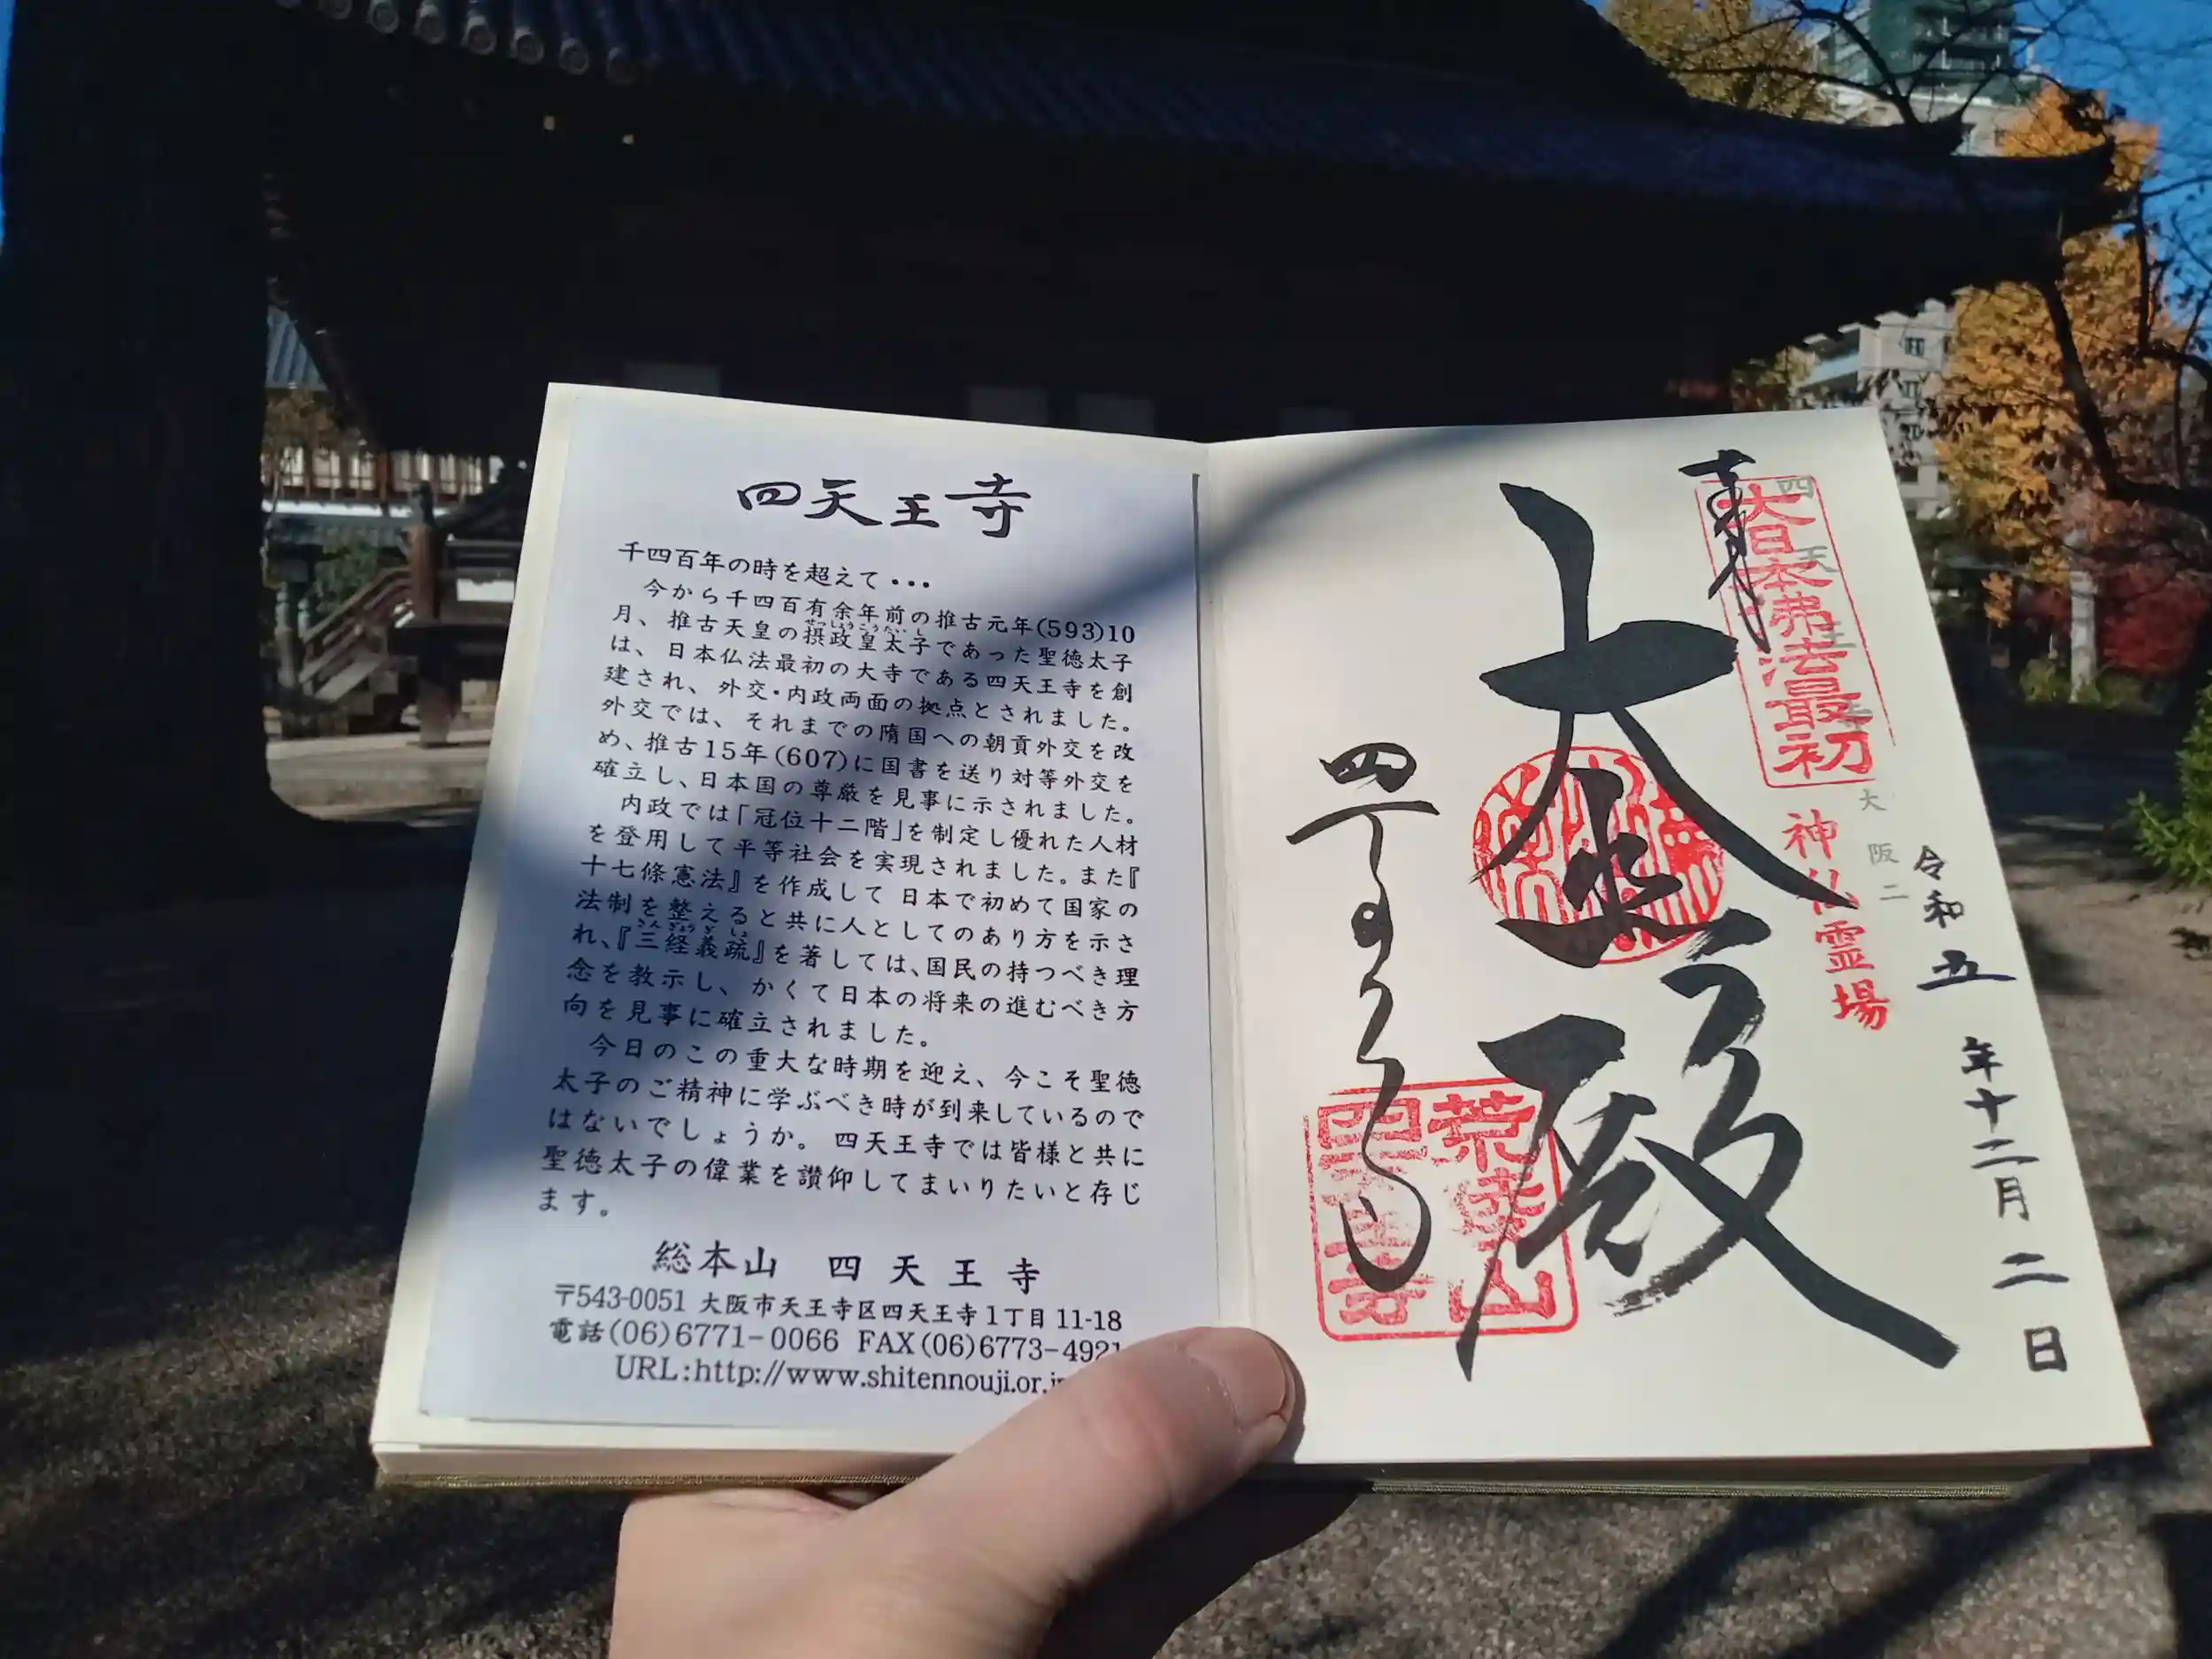 四天王寺
千四百年の時を超えて・・・
今から千四百有余年前の推古元年(593)10
月、推古天皇の摂政皇太子であった聖徳太子
は、日本仏法最初の大寺である四天王寺を創
建され、外交・内政両面の拠点とされました。
外交では、それまでの隋国への朝貢外交を改
め、推古15年(607)に国書を送り対等外交を
確立し、日本国の尊厳を見事に示されました。
内政では「冠位十二階」を制定し優れた人材
を登用して平等社会を実現されました。また『
十七條憲法』を作成して日本で初めて国家の
法制を整えると共に人としてのあり方を示さ
れ、『三経義疏』を著しては、国民の持つべき理
念を教示し、かくて日本の将来の進むべき方
向を見事に確立されました。
今日のこの重大な時期を迎え、今こそ聖徳
太子のご精神に学ぶべき時が到来しているので
はないでしょうか。四天王寺では皆様と共に
聖徳太子の偉業を讃仰してまいりたいと存じ
ます。
総本山 四天王寺
〒543-0051 大阪市天王寺区四天王寺1丁目11-18
電話(06)6771-0066 FAX(06)6773-4921
URL:http://www.shitennouji.or.j
令和五年十二月二日
大阪二
神仏霊場
四天王寺
大日本佛法最初
奉拝
大悲殿
四天王寺
荒陵山
四天王寺